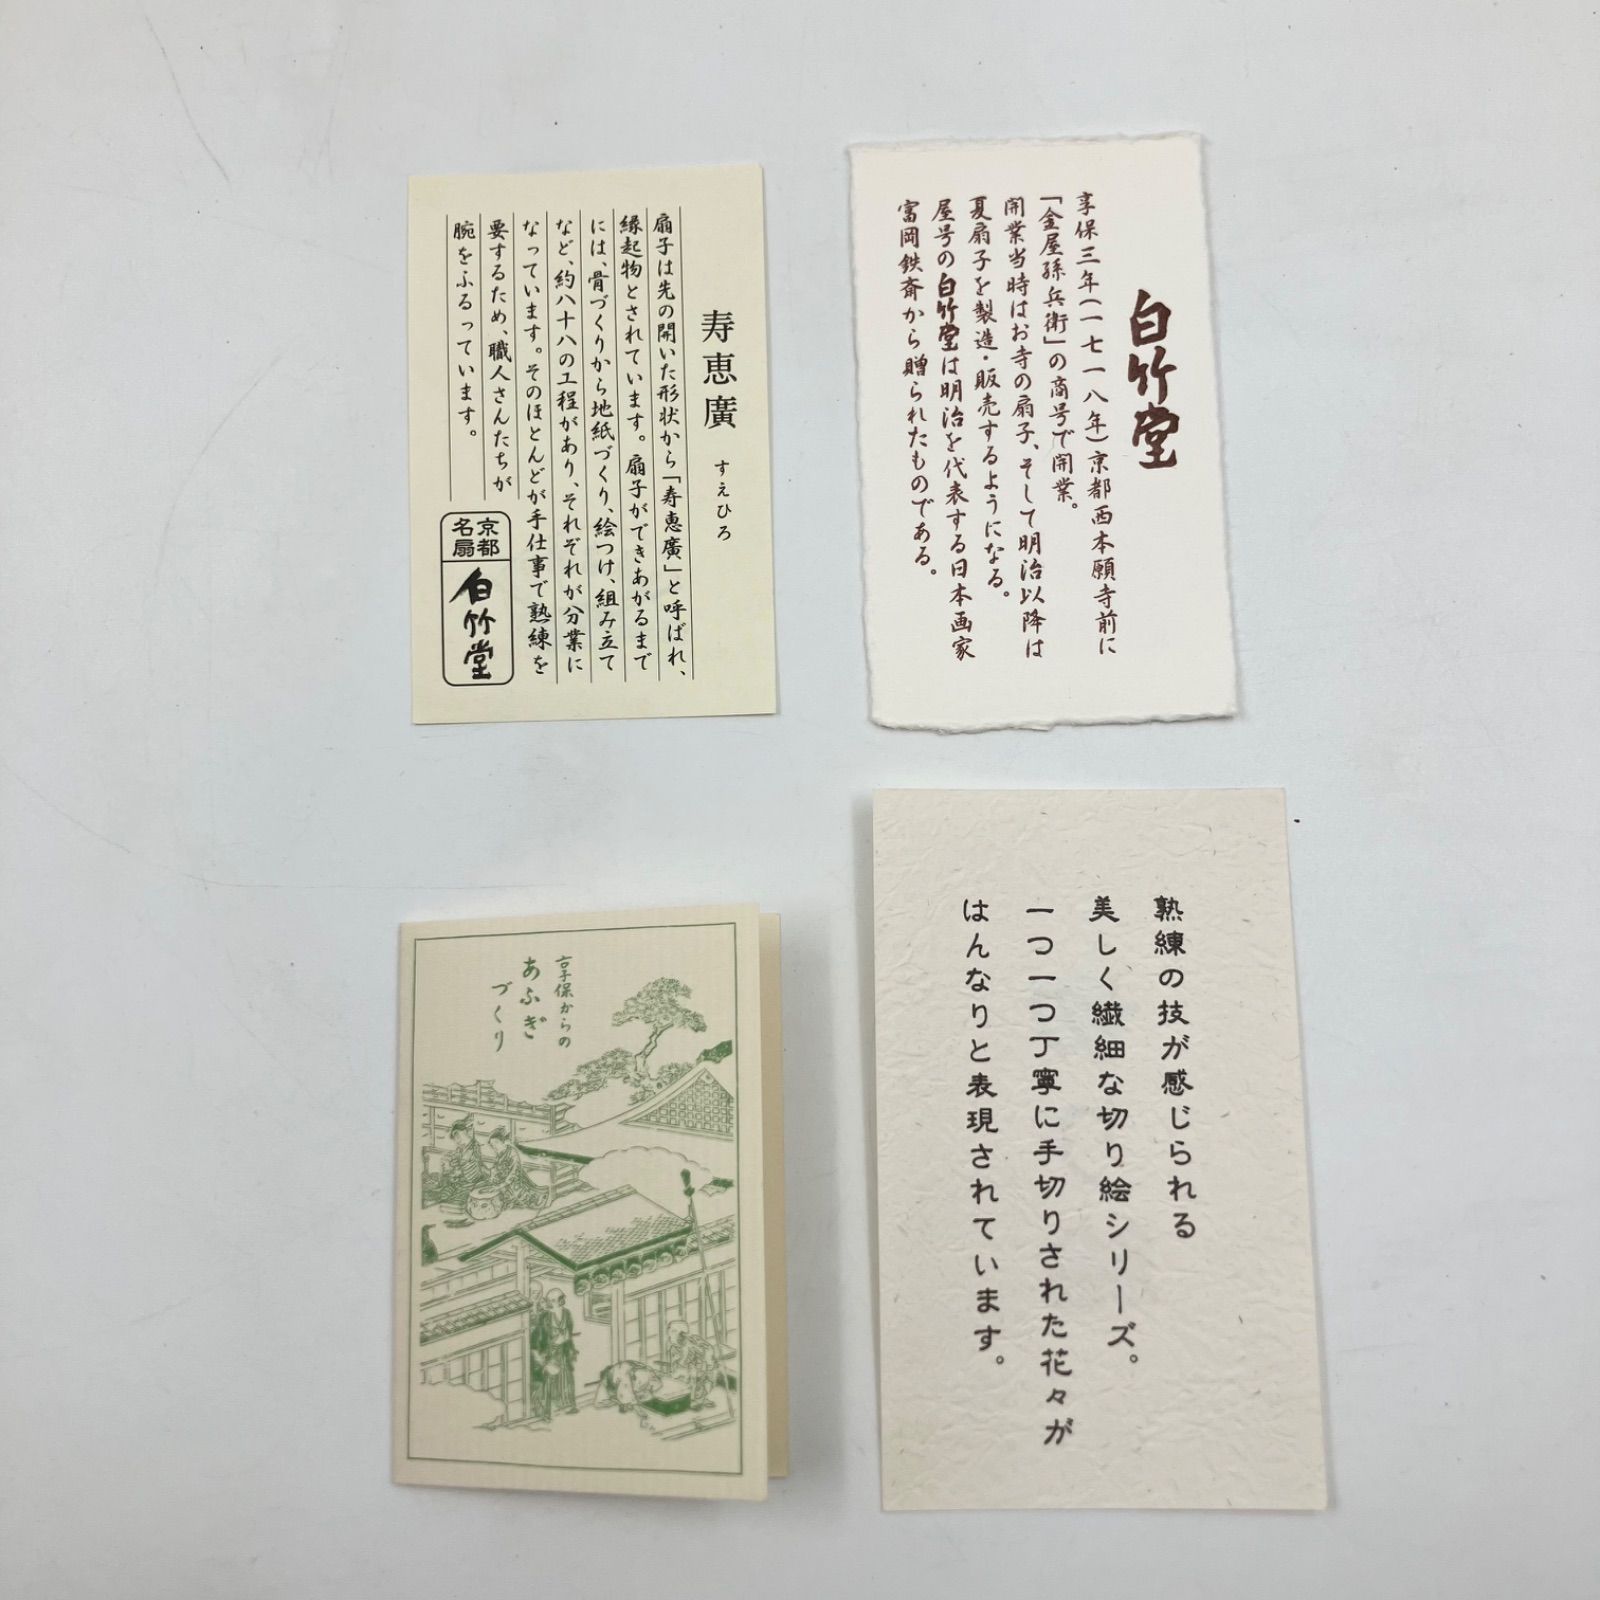 寿恵廣 すえひろ
扇子は先の開いた形状から「寿恵廣」と呼ばれ、
縁起物とされています。扇子ができあがるまで
には、骨づくりから地紙づくり、絵つけ、組み立て
など、約八十八の工程があり、それぞれが分業に
なっています。そのほとんどが手仕事で熟練を
要するため、職人さんたちが
腕をふるっています。
京都
名扇
白竹堂
白竹堂
享保三年(一七一八年)京都西本願寺前に
「金屋孫兵衛」の商号で開業。
開業当時はお寺の扇子、そして明治以降は
夏扇子を製造・販売するようになる。
屋号の白竹堂は明治を代表する日本画家
富岡鉄斎から贈られたものである。
享保からの
あふぎ
づくり
熟練の技が感じられる
美しく繊細な切り絵シリーズ。
一つ一つ丁寧に手切りされた花々が
はんなりと表現されています。